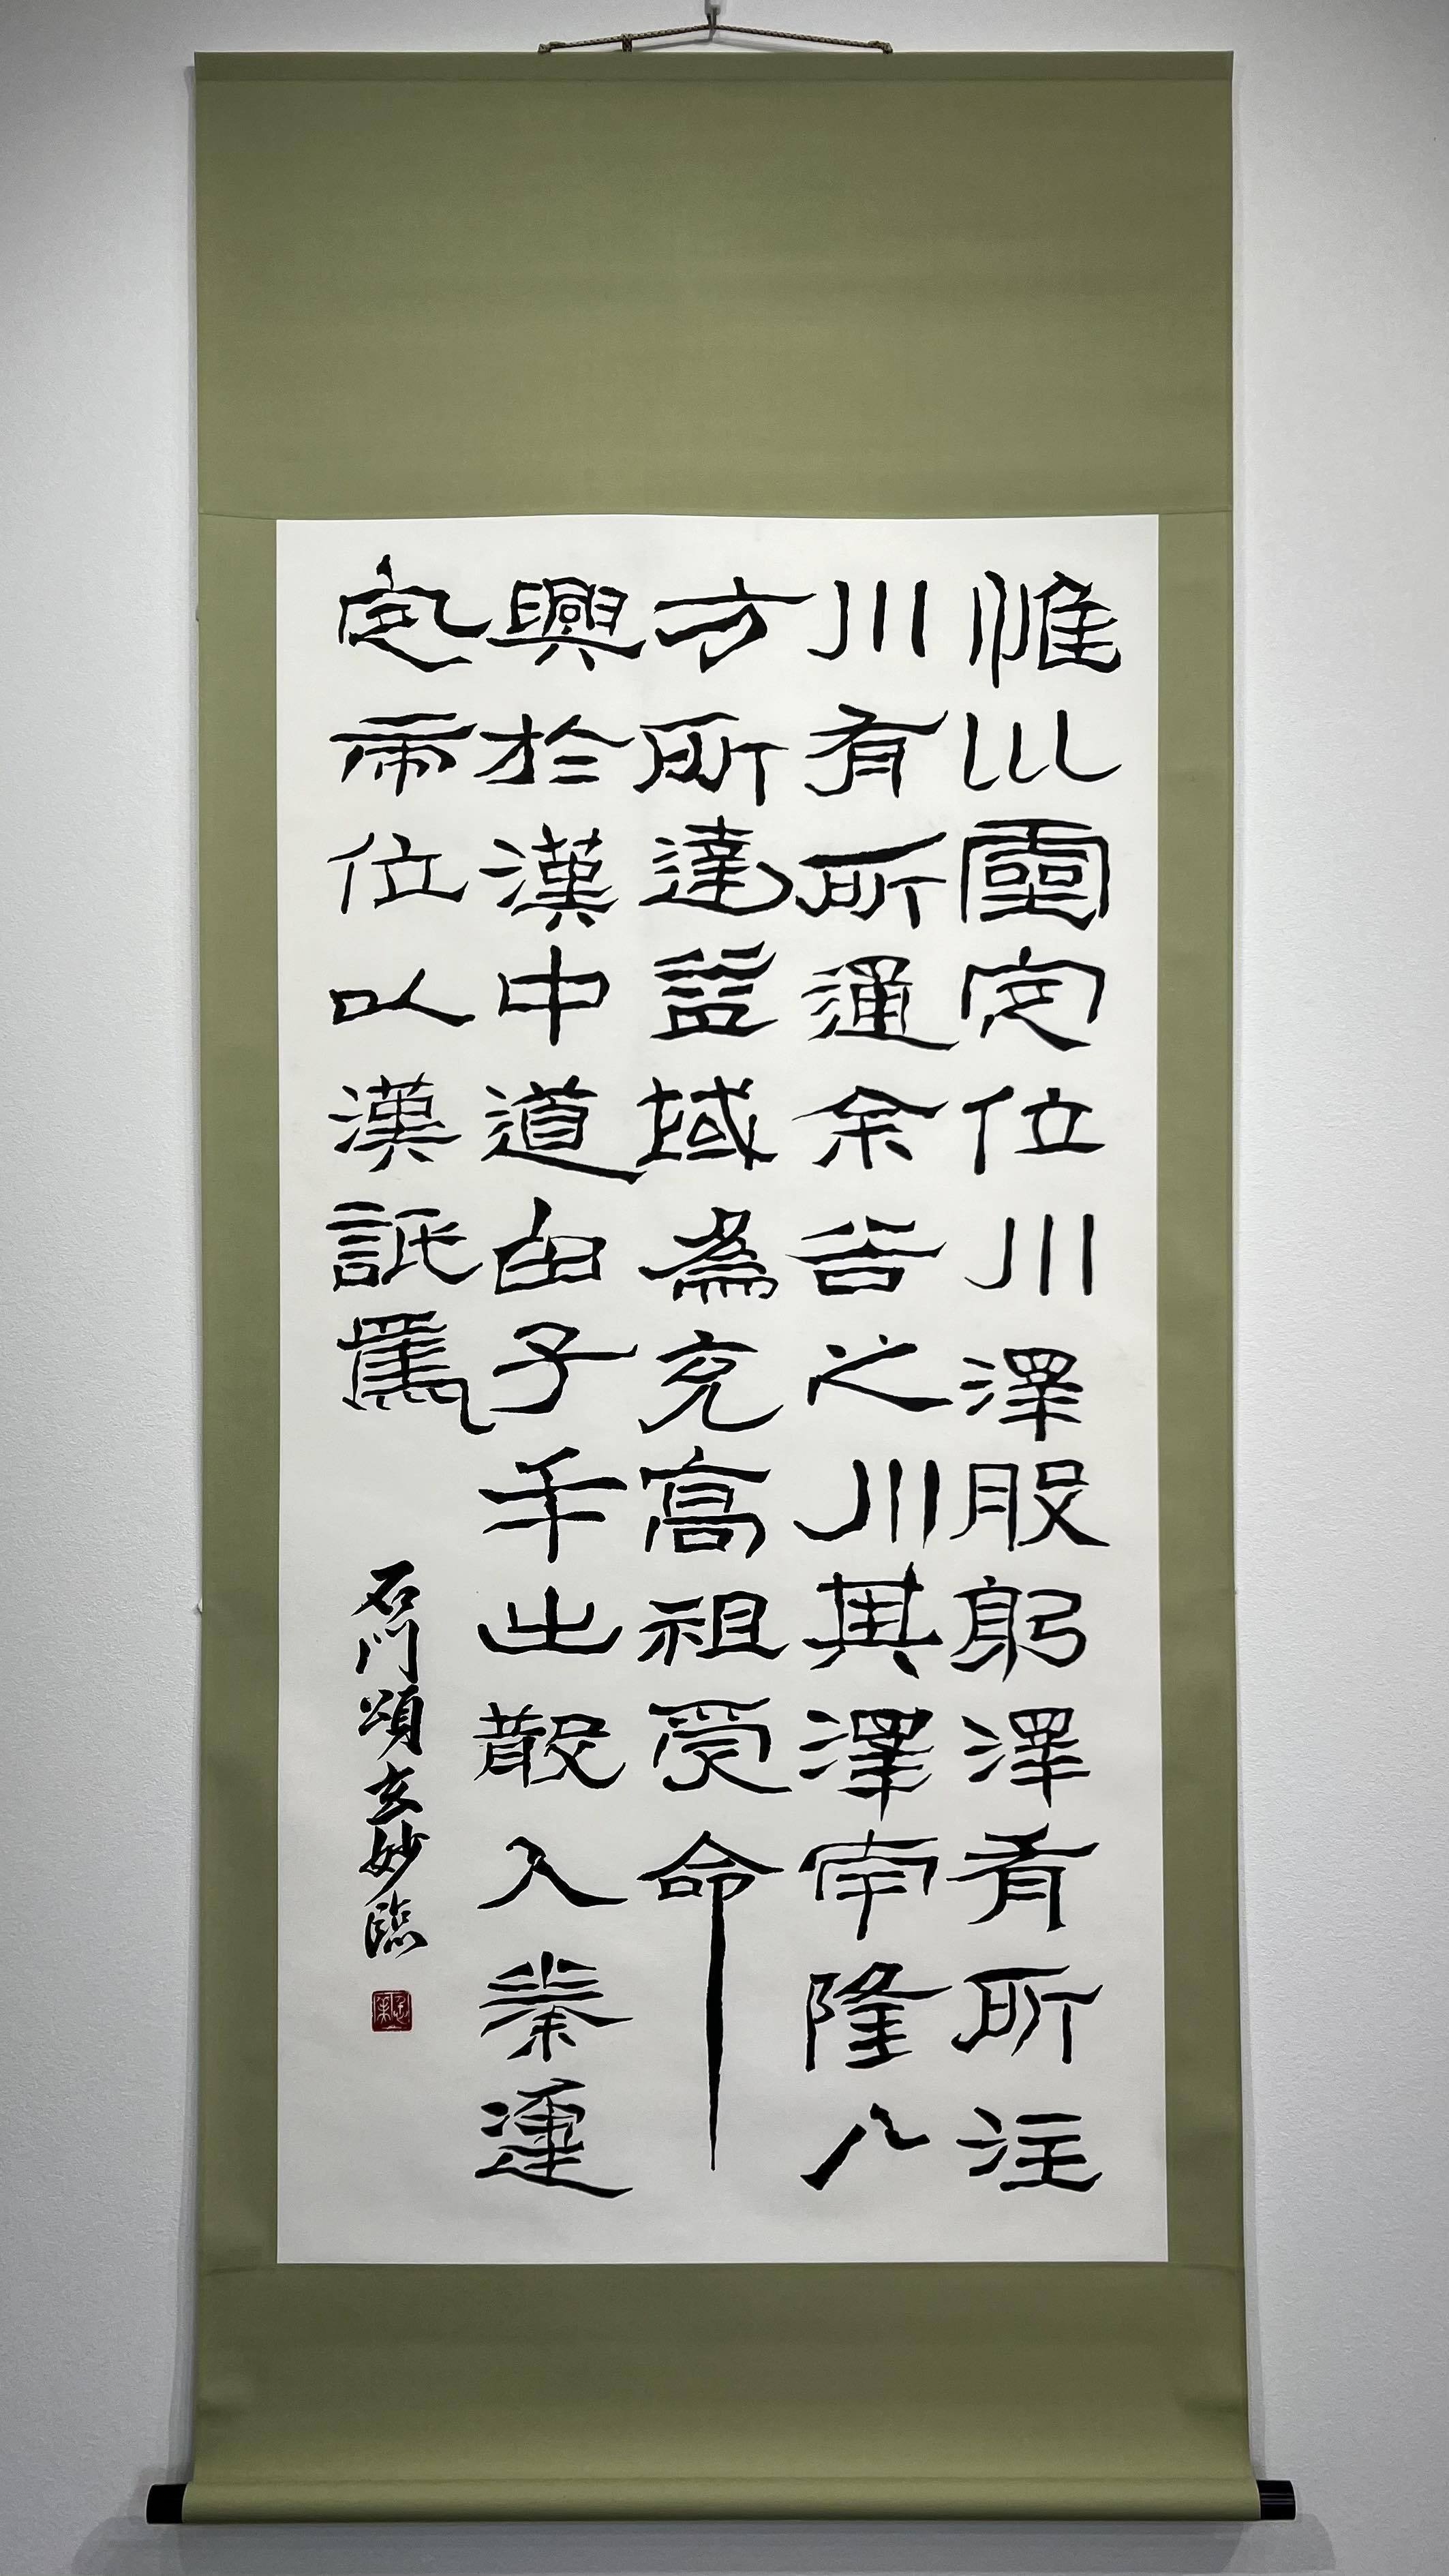 惟巛靈定位川澤股躬澤有所注
川有所通余谷之川其澤南隆八
方所達益域為充高祖受命
興於漢中道由子午出散入秦建
定帝位以漢詆焉
石門頌玄妙臨